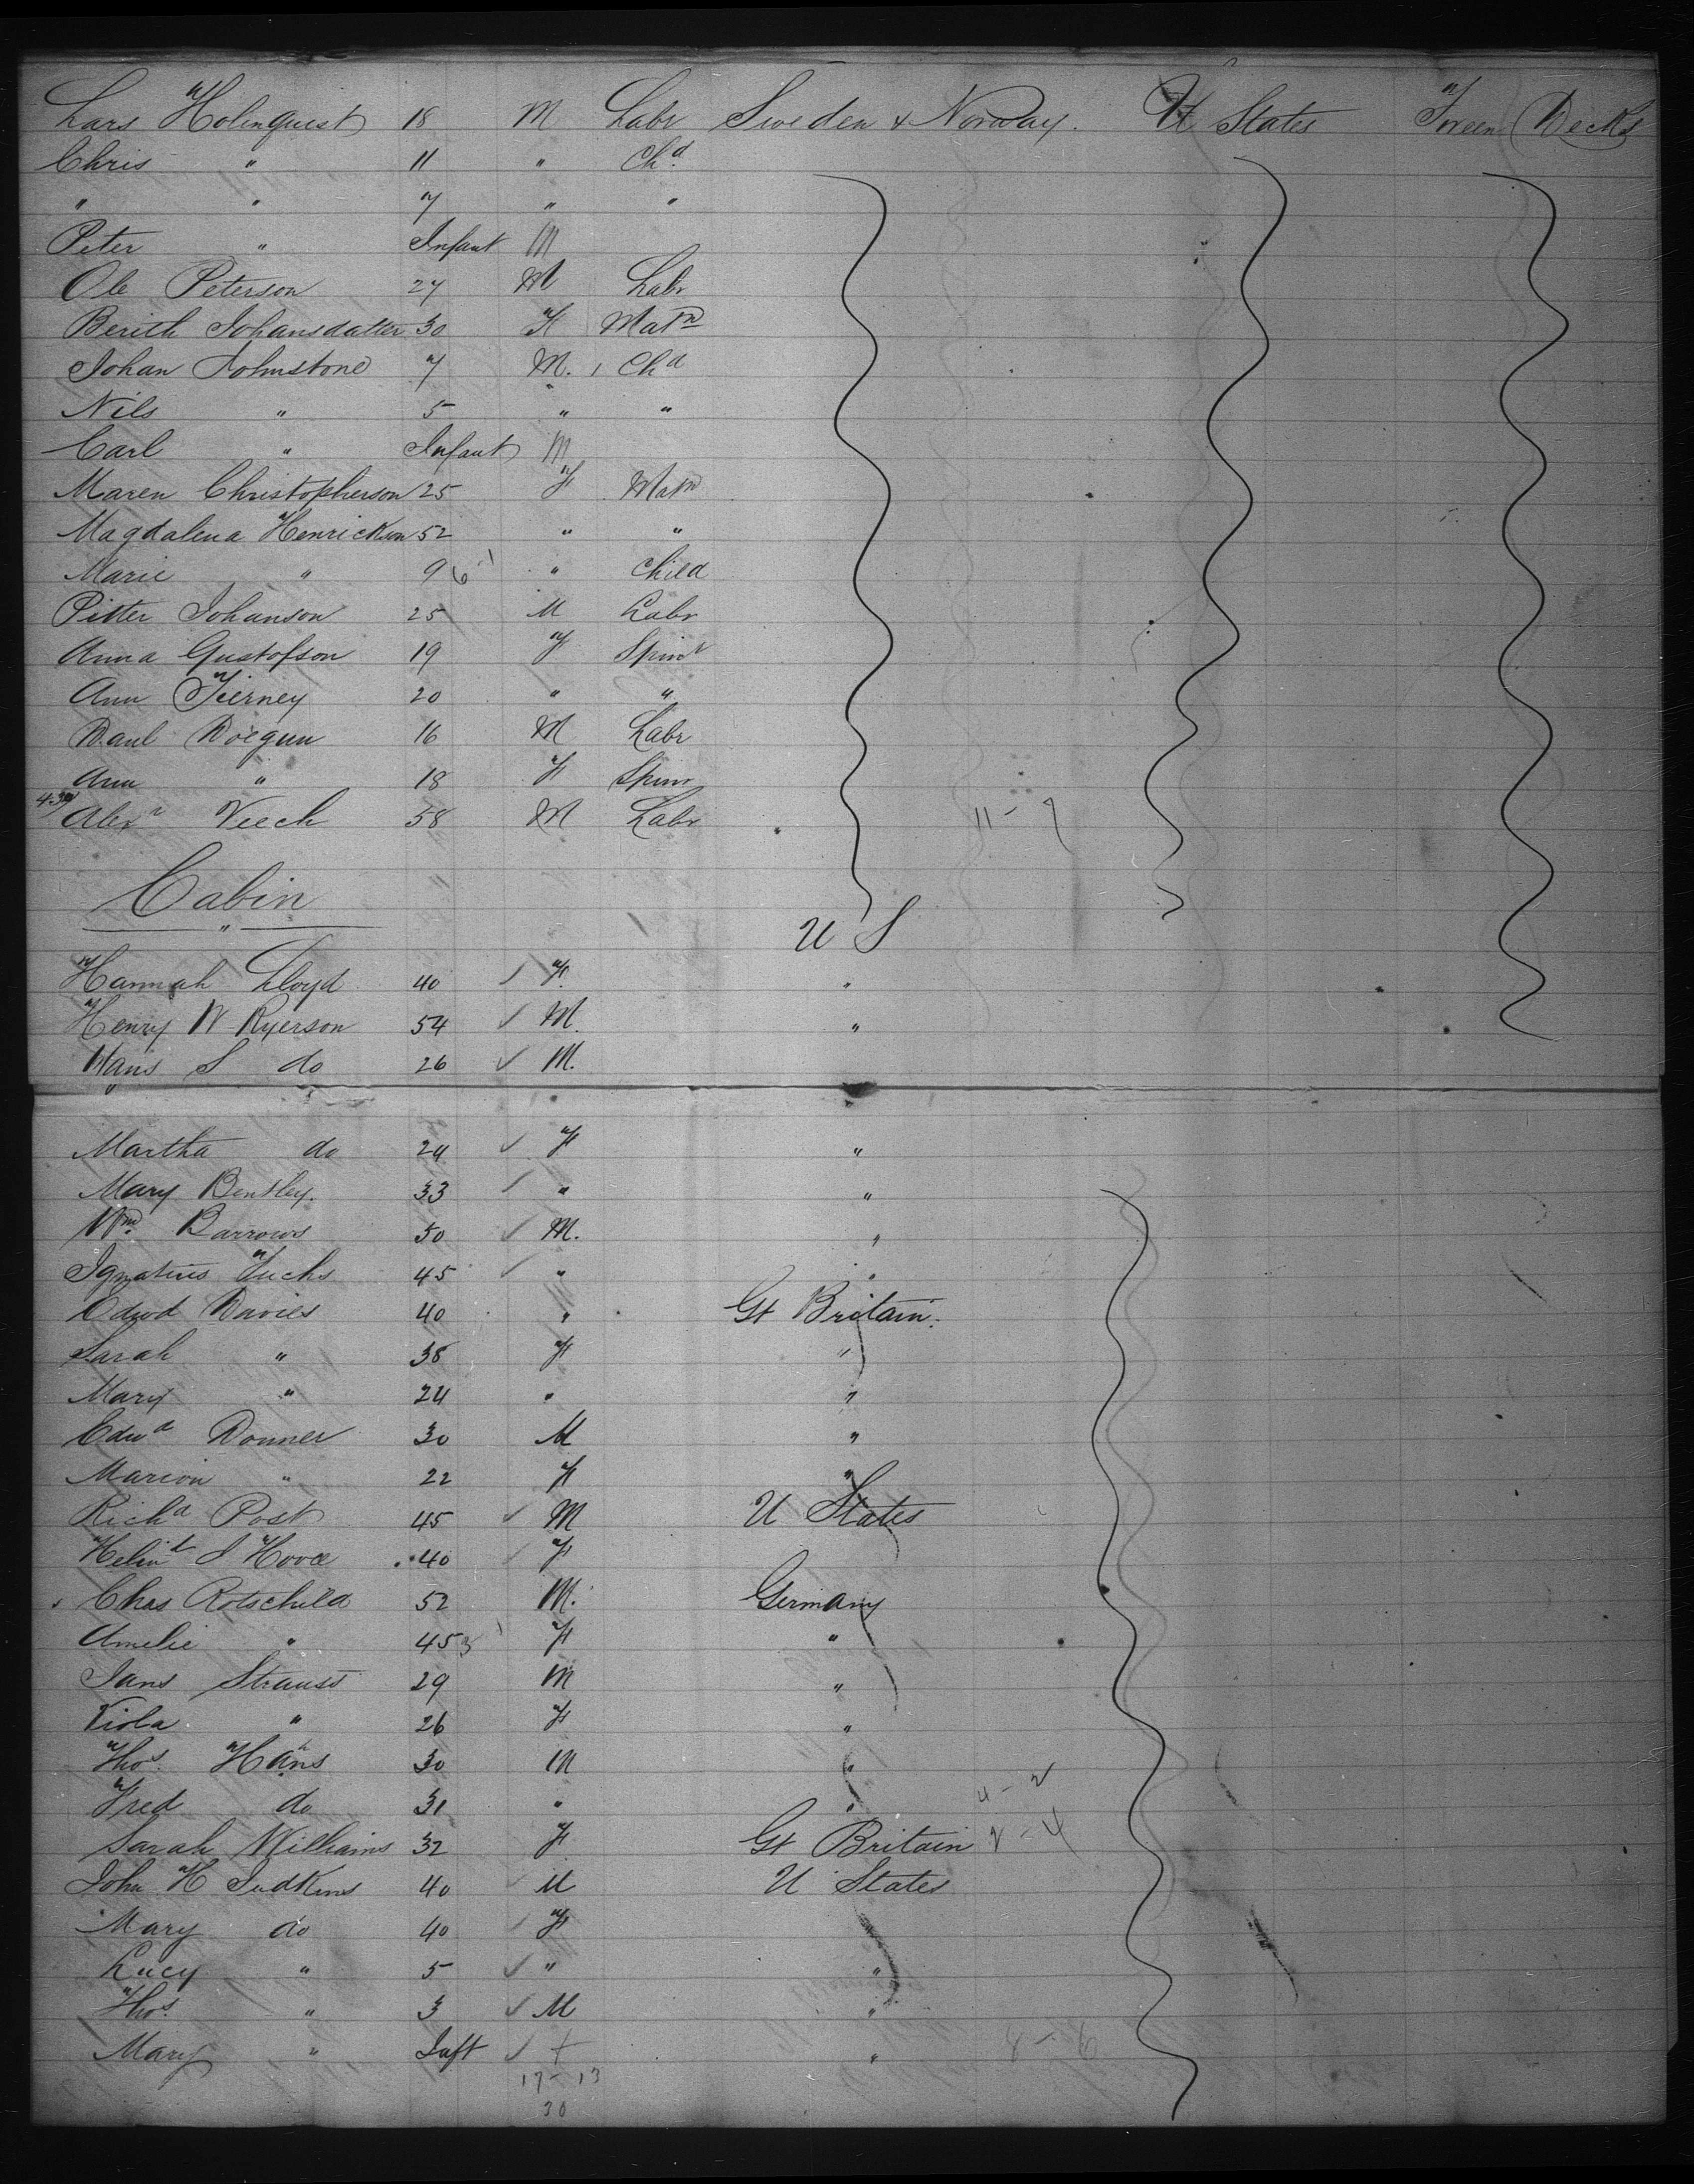 Lars Holmquist 18 M Labr Sweden & Norway. U States Tween Decks
Chris " 11 " Chd.
" " 7 " "
Peter " Infant M
Ole Peterson 27 M Labr
Berith Johansdatter 30 F Matn
Johan Johnstone 7 M. Chd
Nils " 5 " "
Carl " Infant M
Maren Christopherson 25 F Matn
Magdalena Henrickson 52 " "
Marie " 9 6 " Child
Pitter Johanson 25 M Labr
Anna Gustofson 19 F Spinr
Ann Tierney 20 " "
Daul Doegun 16 M Labr
Ann " 18 F Spinr
Alexr Veech 58 M Labr 11-7
Cabin
" U S
Hannah Lloyd 40 ✓ F. "
Henry W Ryerson 54 ✓ M. "
Hans S do 26 ✓ M.
Martha do 24 ✓ F "
Mary Bentley. 33 ✓ " "
Wm. Barrows 50 ✓ M. "
Ignatius Fuchs 45 ✓ " "
Edwd Davies 40 " Gt Britain.
Sarah " 38 F "
Mary " 24 " "
Edwd Donner 30 M "
Marion " 22 F "
Richd Post 45 ✓ M U States
40 ✓ F
Chas Rotschild 52 M. Germany
Amelie " 45 3 F "
Jans Strauss 29 M "
Viola " 26 F "
Thos. Hans 30 M " 4-2
Fred do 31 " "
Sarah Williams 32 F Gt Britain 2-4
John H Judkins 40 ✓ M U States
Mary do 40 ✓ F
Lucy " 5 ✓ " "
Thos. " 3 ✓ M "
Mary " Inft ✓ f " 8-6
17-13
30